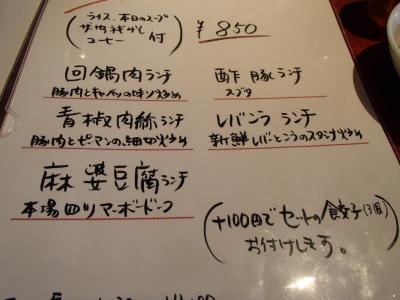 ライス、本日のスープ
ザーサイ
コーヒー 付
¥850
回鍋肉ランチ
豚肉とキャベツのみそ炒め
酢豚ランチ
スブタ
青椒肉絲ランチ
豚肉とピーマンの細切り炒め
レバニラ ランチ
新鮮レバーとニラのスタミナ炒め
麻婆豆腐ランチ
本場四川マーボードーフ
(+100円でセットの餃子(3個)
お付けします。)